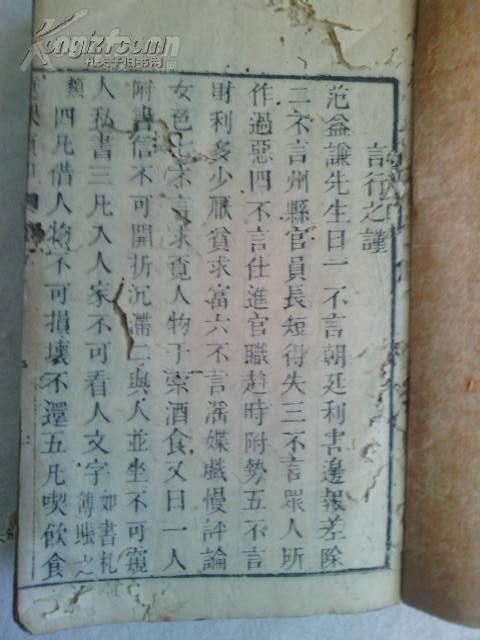 言行之謹
范益謙先生曰一不言朝廷利害邊報差除
二不言州縣官員長短得失三不言眾人所
作過惡四不言仕進官職趨時附勢五不言
財利多少厭貧求富六不言滛媟戲慢評論
女色七不言求覓人物干索酒食又曰一人
附書信不可開折沉滯二與人並坐不可窺
人私書三凡入人家不可看人文字如書札簿賬之
類四凡借人物不可損壞不還五凡喫飲食
Kongfz.com
孔夫子旧书网